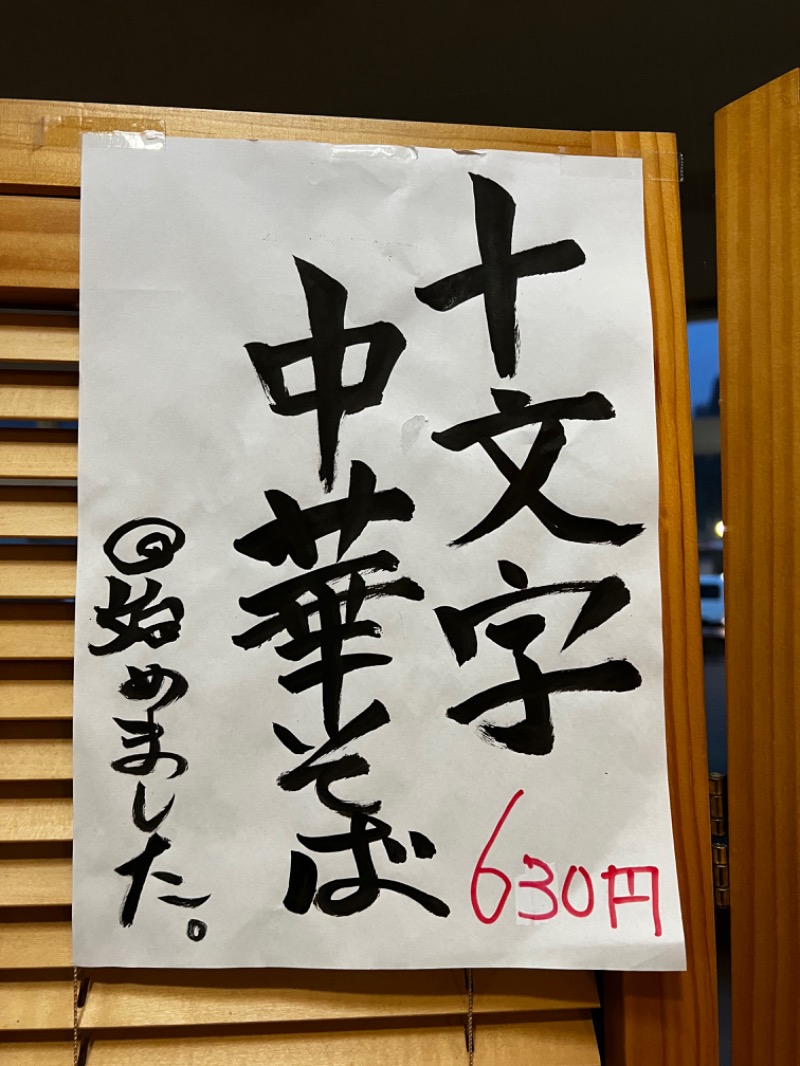 十文字
中華そば
始めました。
630円